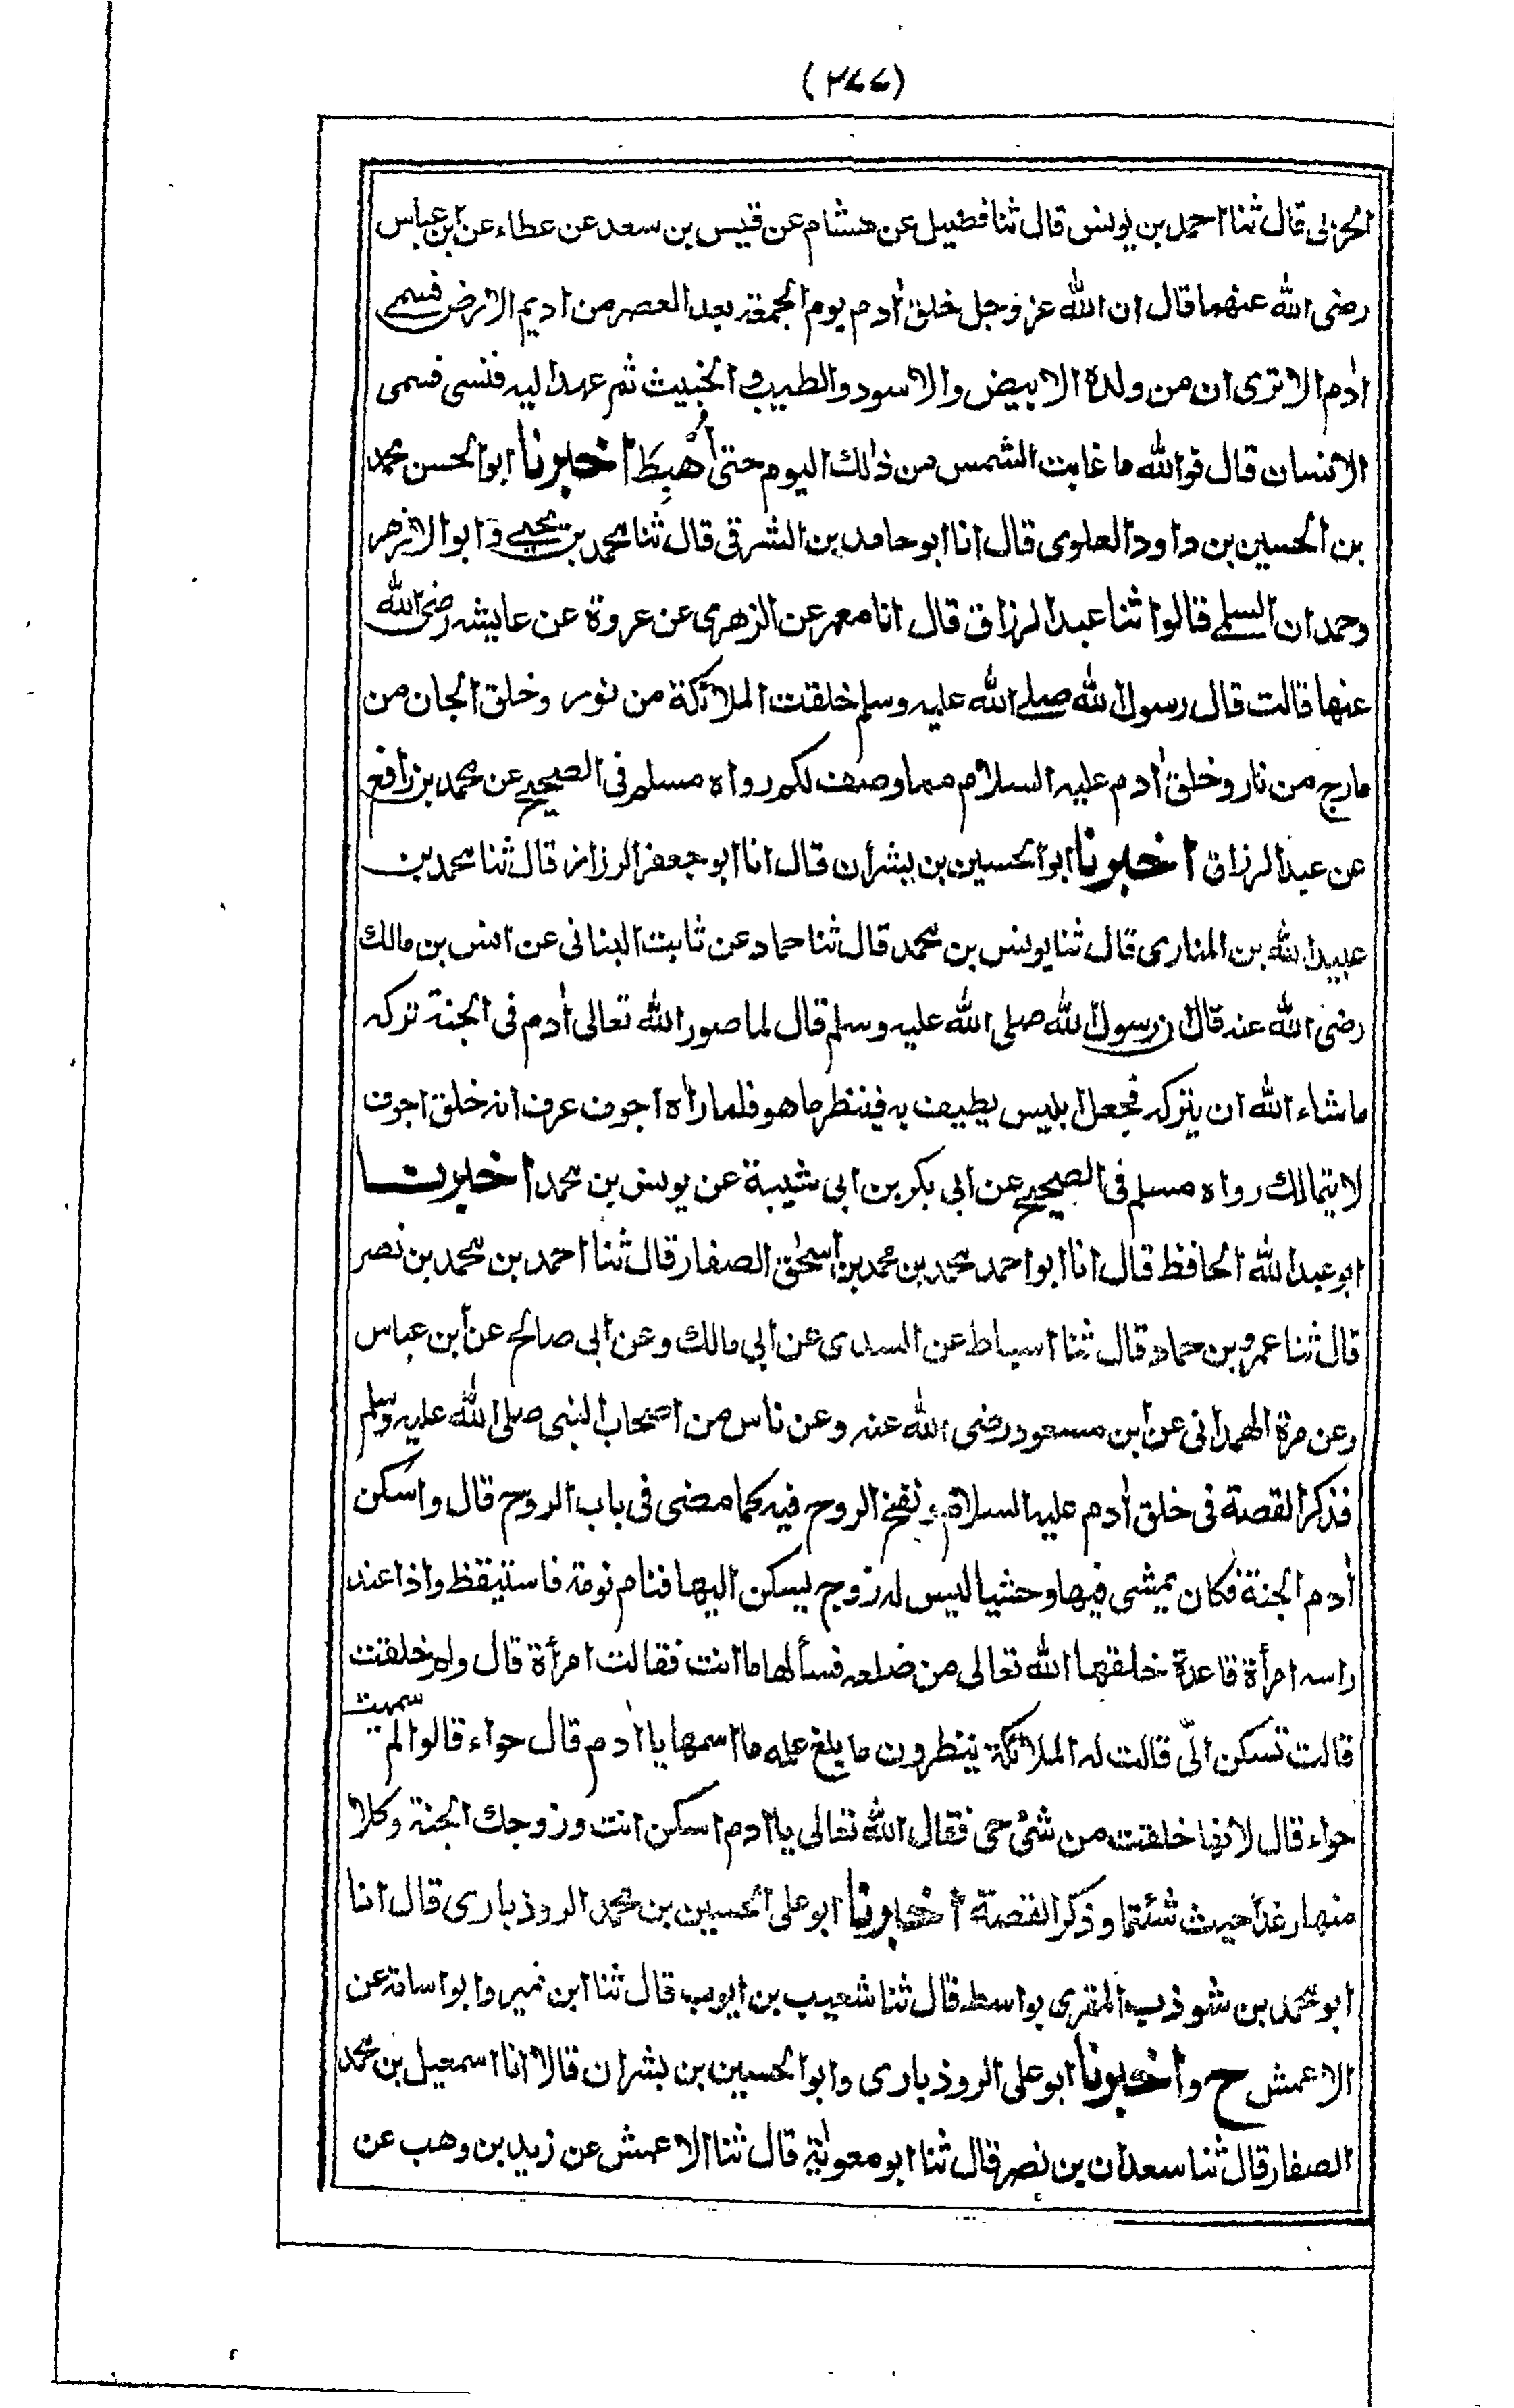 (٢٧٧)
الحزبى قال ثنا احمد بن يونس قال ثنا فضيل عن هشام عن قيس بن سعد عن عطاء عن ابن عباس
رضى الله عنهما قال ان الله عز وجل خلق اٰدم يوم الجمعة بعد العصر من اديم الارض فسمى
اٰدم الا ترى ان من ولده الابيض والاسود والطيب والخبيث ثم عهد اليه فنسى فسمى
الانسان قال فوالله ما غابت الشمس من ذلك اليوم حتى اُهبِطَ اخبرنا ابوالحسن محمد
بن الحسين بن داود العلوى قال انا ابو حامد بن الشرقى قال ثنا محمد بن يحيى وابو الازهر
وحمدان السلمى قالوا ثنا عبد الرزاق قال انا معمر عن الزهرى عن عروة عن عايشه رضى الله
عنها قالت قال رسول الله صلى الله عليه وسلم خلقت الملائكة من نور وخلق الجان من
مارج من نار وخلق اٰدم عليه السلام مما وصف لكم رواه مسلم فى الصحيح عن محمد بن رافع
عن عبد الرزاق اخبرنا ابوالحسين بن بشران قال انا ابو جعفر الرزاز قال ثنا محمد بن
عبيد الله بن المنارى قال ثنا يونس بن محمد قال ثنا حماد عن ثابت البنانى عن انس بن مالك
رضى الله عنه قال ان رسول الله صلى الله عليه وسلم قال لما صور الله تعالى اٰدم فى الجنة تركه
ما شاء الله ان يتركه فجعل ابليس يطيف به فينظر ما هو فلما راٰه اجوف عرف انه خلق اجوف
لا يتمالك رواه مسلم فى الصحيح عن ابى بكر بن ابى شيبة عن يونس بن محمد اخبرنا
ابو عبد الله الحافظ قال انا ابو احمد محمد بن محمد بن اسحٰق الصفار قال ثنا احمد بن محمد بن نصر
قال ثنا عمرو بن حماد قال ثنا اسباط عن السدى عن ابى مالك وعن ابى صالح عن ابن عباس
وعن مرة الهمدانى عن ابن مسعود رضى الله عنه وعن ناس من اصحاب النبى صلى الله عليه وسلم
فذكر القصة فى خلق اٰدم عليه السلام ونفخ الروح فيه كما مضى فى باب الروح قال واسكن
اٰدم الجنة فكان يمشى فيها وحشيا ليس له زوج يسكن اليها فنام نومة فاستيقظ واذا عند
راسه امرأة قاعدة خلقها الله تعالى من ضلعه فسألها ما انت فقالت امرأة قال ولم خلقت
قالت تسكن الىّ قالت له الملائكة ينظرون ما يلغ علمه ما اسمها يا اٰدم قال حواء قالوا لم سميت
حواء قال لانها خلقت من شئ حى فقال الله تعالى يا اٰدم اسكن انت وزوجك الجنة وكلا
منها رغدا حيث شئتما وذكر القصة اخبرنا ابو على الحسين بن محمد الروذبارى قال انا
ابو محمد بن شوذب المقرى بواسط قال ثنا شعيب بن ايوب قال ثنا ابن نمير وابو اسامة عن
الاعمش ح واخبرنا ابو على الروذبارى وابو الحسين بن بشران قالا انا اسمعيل بن محمد
الصفار قال ثنا سعدان بن نصر قال ثنا ابو معوٰية قال ثنا الاعمش عن زيد بن وهب عن